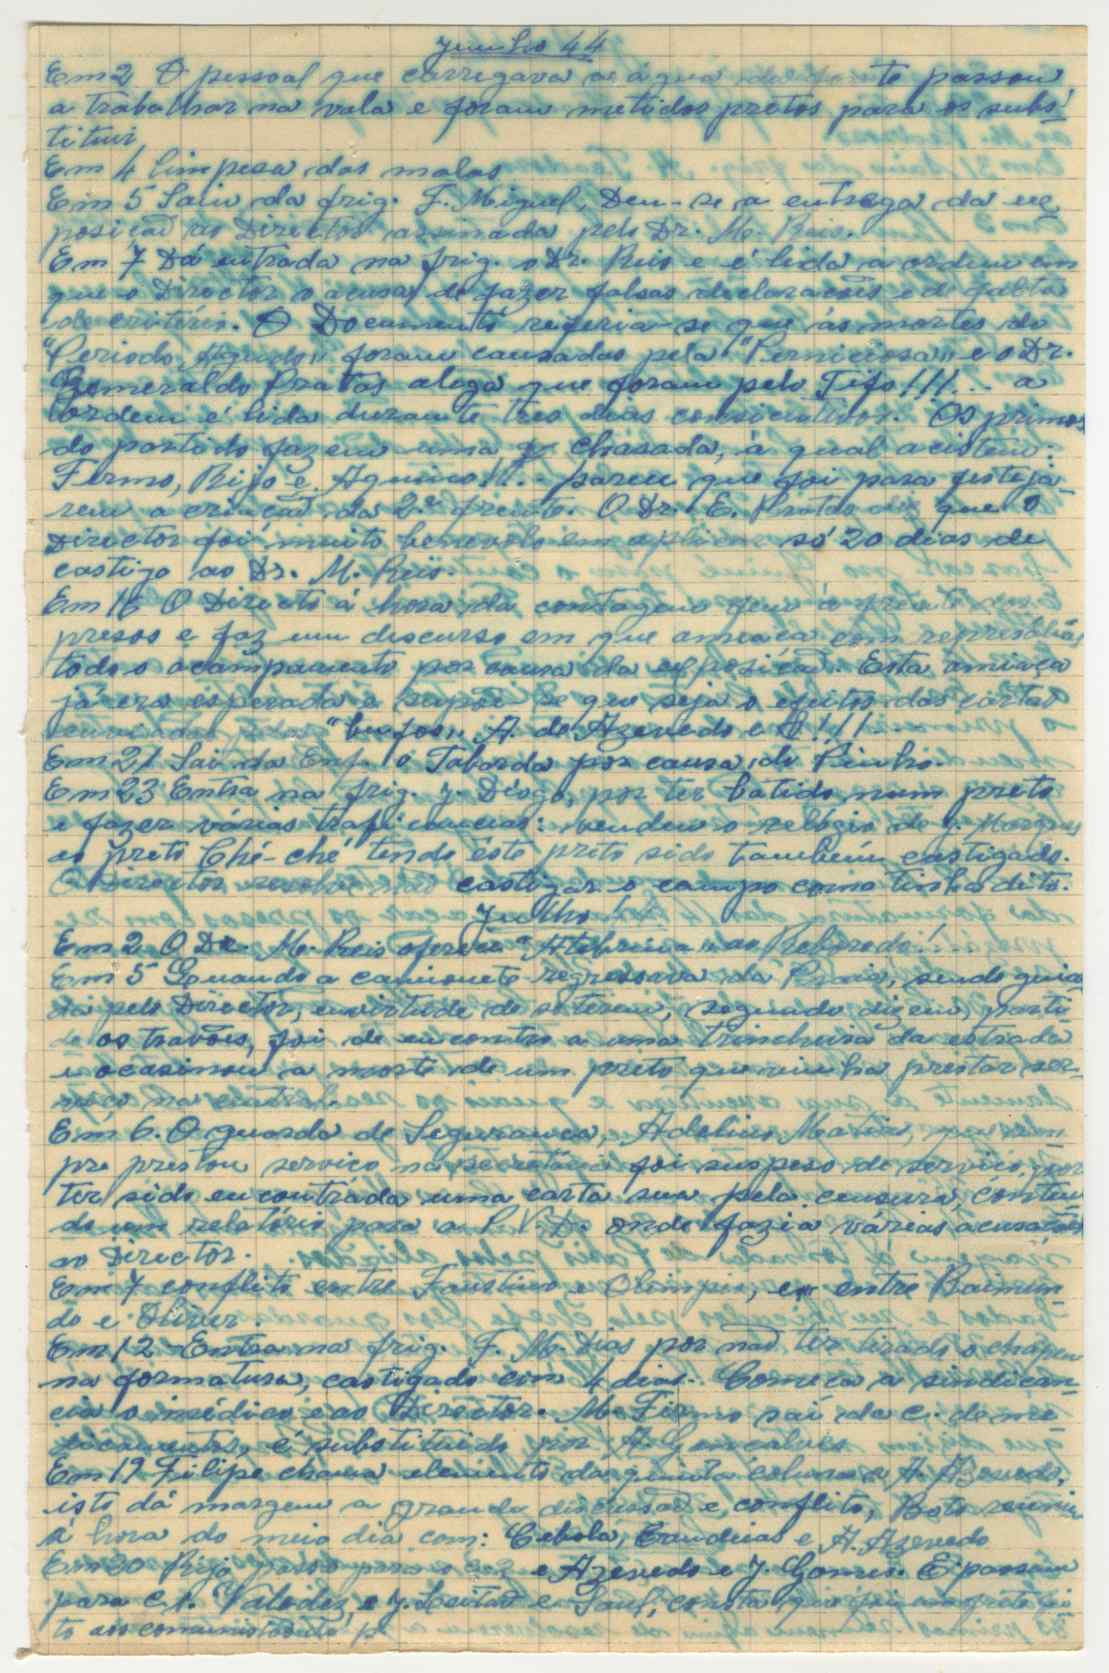 Junho 44
Em 2 O pessoal que carregava a água da fonte passou
a trabalhar na vala e foram metidos pretos para os subs-
tituir
Em 4 limpesa das malas
Em 5 Saiu da frig. F. Miguel, Deu-se a entrega da ex
posição ao Director assinada pelo Dr. M. Reis.
Em 7 Dá entrada na frig. o Dr. Reis e é lida a ordem em
que o Director o acusa de fazer falsas declarações e de falta
de critério. O Documento referia-se que ás mortes do
"Periodo Agudo" foram causadas pela "Perniciosa" e o Dr.
Esmeraldo Pratas alega que foram pelo Tifo!!!... a
ordem é lida durante tres dias consicutivos. Os primos
do partido fazem uma chásada, á qual acistem:
Firmo, Rijo e Aquino!!... parece que foi para festeja-
rem a criação da 2ª frente. O Dr. E. Pratas diz que o
Director foi muito benevolo em aplicar só 20 dias de
castigo ao Dr. M. Reis.
Em 16 O Directo á hora da contagem vem á frente dos
presos e faz um discurso em que ameaça com represálias
todo o acampamento por causa da exposição. Esta ameaça
já era esperada e supõe-se que seja o efeitos das cartas
"bufos" A. de Azevedo e !!!
Em 21 Sai da Enf. o Taborda por causa do Pinho.
Em 23 Entra na frig. J. Diogo, por ter batido num preto
e fazer várias traficancias: vendeu o relógio do J. Marques
ao preto Ché-ché tendo éste preto sido também castigado.
O Director resolve não castigar o campo como tinha dito.
Julho
Em 2 O Dr. M. Reis oferece "Atebrina" ao Reboredo!
Em 5 Quando a camionete regressava da Praia, sendo guia
da pelo Director, em virtude de se terem, segundo dizem, parti
do os travões, foi de encontro a uma trincheira da estrada
e ocasinou a morte de um preto que vinha prestar ser-
viço na central.
Em 6. O guarda de Segurança, Adelino Matia, que sem
pre prestou serviço na secretária foi suspeso do serviço, por
ter sido encontrada uma carta sua pela censura, conten
do um relatório para a P.V.D. onde fazia várias acusações
ao Director.
Em 7 conflito entre Faustino e Olimpio, e entre Raimun
do e Oliver.
Em 12 Entra na frig. F. M. Dias por não ter tirado o chapeu
na formatura, castigado com 4 dias. Começa a sindican-
cia o médico e ao Director. M. Firmo sai da c. de me
dicamentos, é substituido por A. Gonçalves
Em 19 Filipe chama elemento da quinta coluna a A. Azevedo,
isto dá margem a grande discussão e conflito, Bato reuniu
á hora do meio dia com: Cebola, Candeias e A. Azevedo
Em 20 Rijo passa para a e Azevedo e J. Gomes. E passam
para c 1. Valodez, e J. Leitão e Saul, consta que foi um grato fei
to aos comunistas